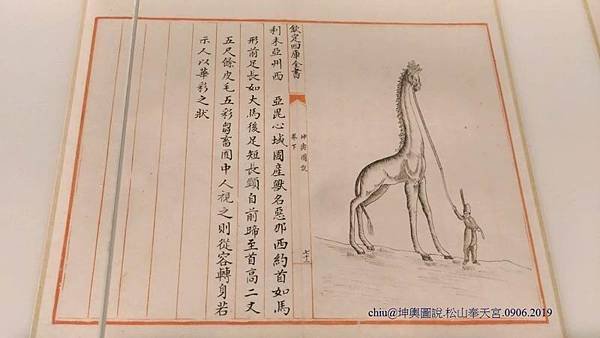 欽定四庫全書
坤輿圖說
卷下
利未亞州西 亞毘心域國產獸名惡那西約首如馬
形前足長如大馬後足短長頸自前蹄至首高二丈
五尺餘皮毛五彩芻畜囿中人視之則從容轉身若
示人以華彩之狀
chiu@坤輿圖說.松山奉天宮.0906.2019